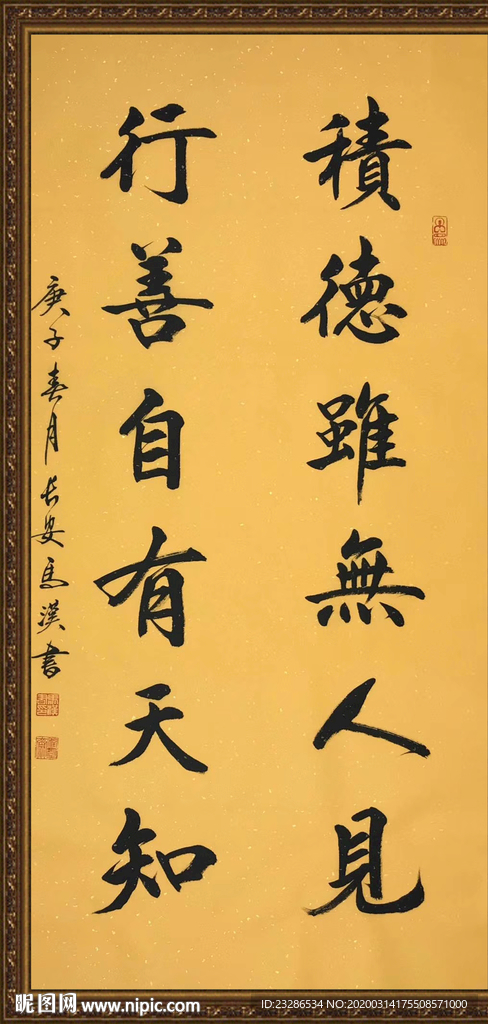 積德雖無人見
行善自有天知
庚子春月長安馬漢書
昵图网 www.nipic.com
ID:23286534 NO:20200314175508571000